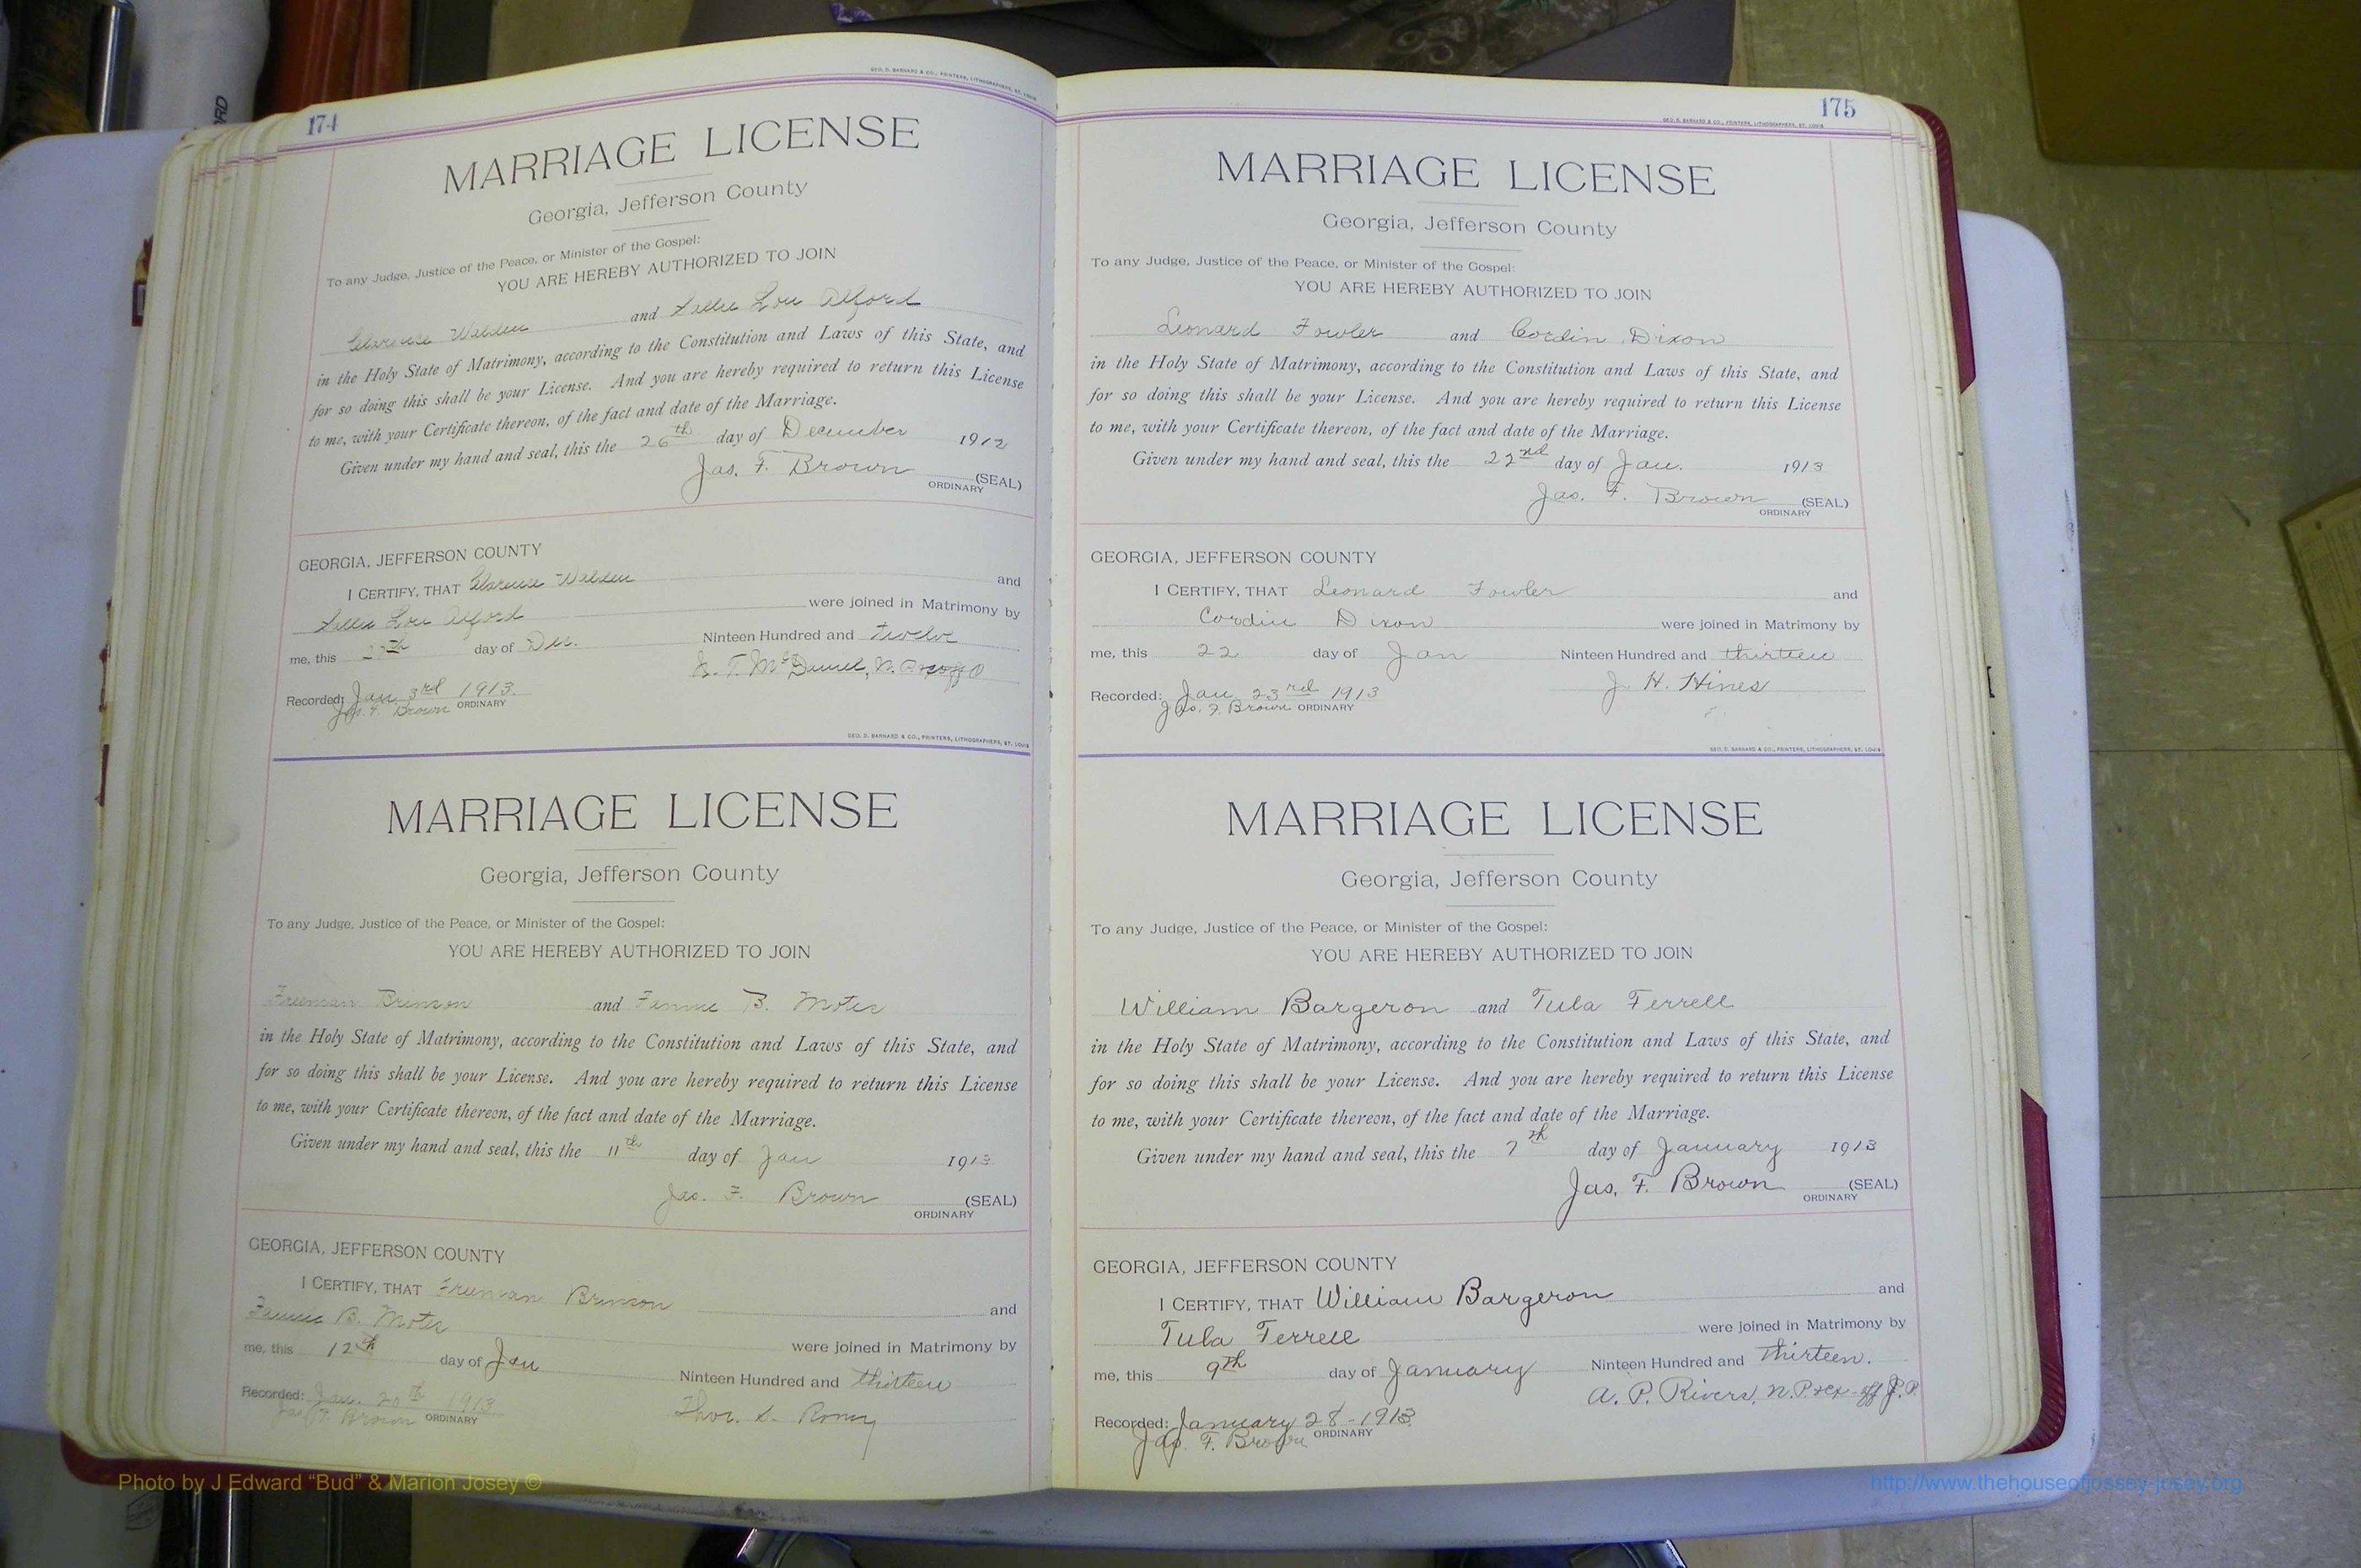 174
GEO. D. BARNARD & CO., PRINTERS, LITHOGRAPHERS, ST. LOUIS
MARRIAGE LICENSE
Georgia, Jefferson County
To any Judge, Justice of the Peace, or Minister of the Gospel:
YOU ARE HEREBY AUTHORIZED TO JOIN
Clarence Walden and Lou Alford
in the Holy State of Matrimony, according to the Constitution and Laws of this State, and
for so doing this shall be your License. And you are hereby required to return this License
to me, with your Certificate thereon, of the fact and date of the Marriage.
Given under my hand and seal, this the 26th day of December 1912
Jas. F. Brown (SEAL)
ORDINARY
GEORGIA, JEFFERSON COUNTY
I CERTIFY, THAT Clarence Walden and
Lou Alford were joined in Matrimony by
me, this day of Dec. Ninteen Hundred and twelve
Recorded: Jan 3rd 1913
Jas. F. Brown ORDINARY
GEO. D. BARNARD & CO., PRINTERS, LITHOGRAPHERS, ST. LOUIS
MARRIAGE LICENSE
Georgia, Jefferson County
To any Judge, Justice of the Peace, or Minister of the Gospel:
YOU ARE HEREBY AUTHORIZED TO JOIN
Freeman Brinson and Fannie B. Moter
in the Holy State of Matrimony, according to the Constitution and Laws of this State, and
for so doing this shall be your License. And you are hereby required to return this License
to me, with your Certificate thereon, of the fact and date of the Marriage.
Given under my hand and seal, this the 11th day of Jan 1913
Jas. F. Brown (SEAL)
ORDINARY
GEORGIA, JEFFERSON COUNTY
I CERTIFY, THAT Freeman Brinson and
Fannie B. Moter were joined in Matrimony by
me, this 12th day of Jan Ninteen Hundred and thirteen
Recorded: Jan. 20th 1913
Jas. F. Brown ORDINARY
175
GEO. D. BARNARD & CO., PRINTERS, LITHOGRAPHERS, ST. LOUIS
MARRIAGE LICENSE
Georgia, Jefferson County
To any Judge, Justice of the Peace, or Minister of the Gospel:
YOU ARE HEREBY AUTHORIZED TO JOIN
Leonard Fowler and Cordin Dixon
in the Holy State of Matrimony, according to the Constitution and Laws of this State, and
for so doing this shall be your License. And you are hereby required to return this License
to me, with your Certificate thereon, of the fact and date of the Marriage.
Given under my hand and seal, this the 22nd day of Jan. 1913
Jas. F. Brown (SEAL)
ORDINARY
GEORGIA, JEFFERSON COUNTY
I CERTIFY, THAT Leonard Fowler and
Cordin Dixon were joined in Matrimony by
me, this 22 day of Jan Ninteen Hundred and thirteen
J. H. Hines
Recorded: Jan 23rd 1913
Jas. F. Brown ORDINARY
GEO. D. BARNARD & CO., PRINTERS, LITHOGRAPHERS, ST. LOUIS
MARRIAGE LICENSE
Georgia, Jefferson County
To any Judge, Justice of the Peace, or Minister of the Gospel:
YOU ARE HEREBY AUTHORIZED TO JOIN
William Bargeron and Tula Ferrell
in the Holy State of Matrimony, according to the Constitution and Laws of this State, and
for so doing this shall be your License. And you are hereby required to return this License
to me, with your Certificate thereon, of the fact and date of the Marriage.
Given under my hand and seal, this the 7th day of January 1913
Jas. F. Brown (SEAL)
ORDINARY
GEORGIA, JEFFERSON COUNTY
I CERTIFY, THAT William Bargeron and
Tula Ferrell were joined in Matrimony by
me, this 9th day of January Ninteen Hundred and Thirteen.
A. P. Rivers, N.P. & ex-off J.P.
Recorded: January 28-1913
Jas. F. Brown ORDINARY
Photo by J Edward “Bud” & Marion Josey ©
http://www.thehouseofjossey-josey.org